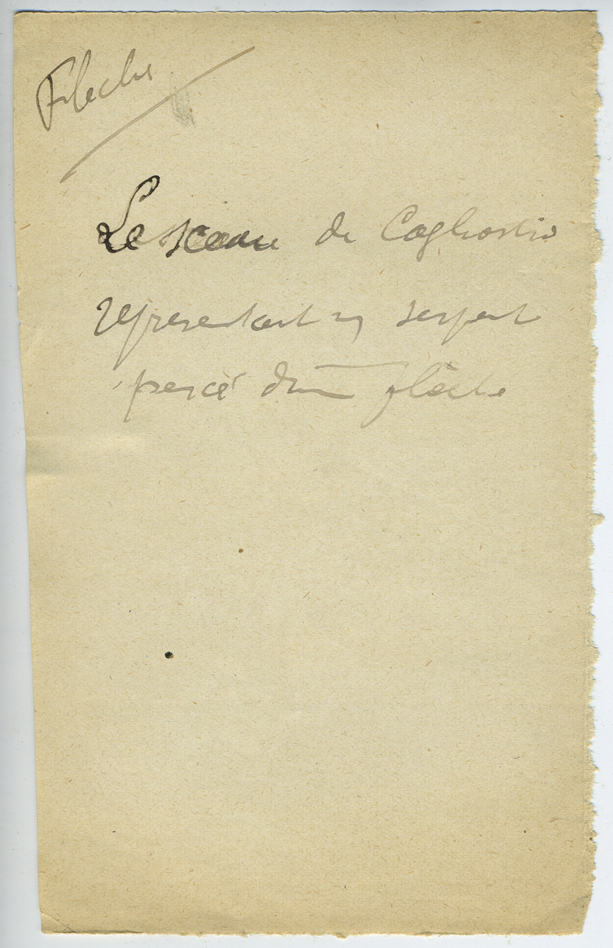 Flèche
Le sceau de Cagliostro
représentant un serpent
percé d'une flèche